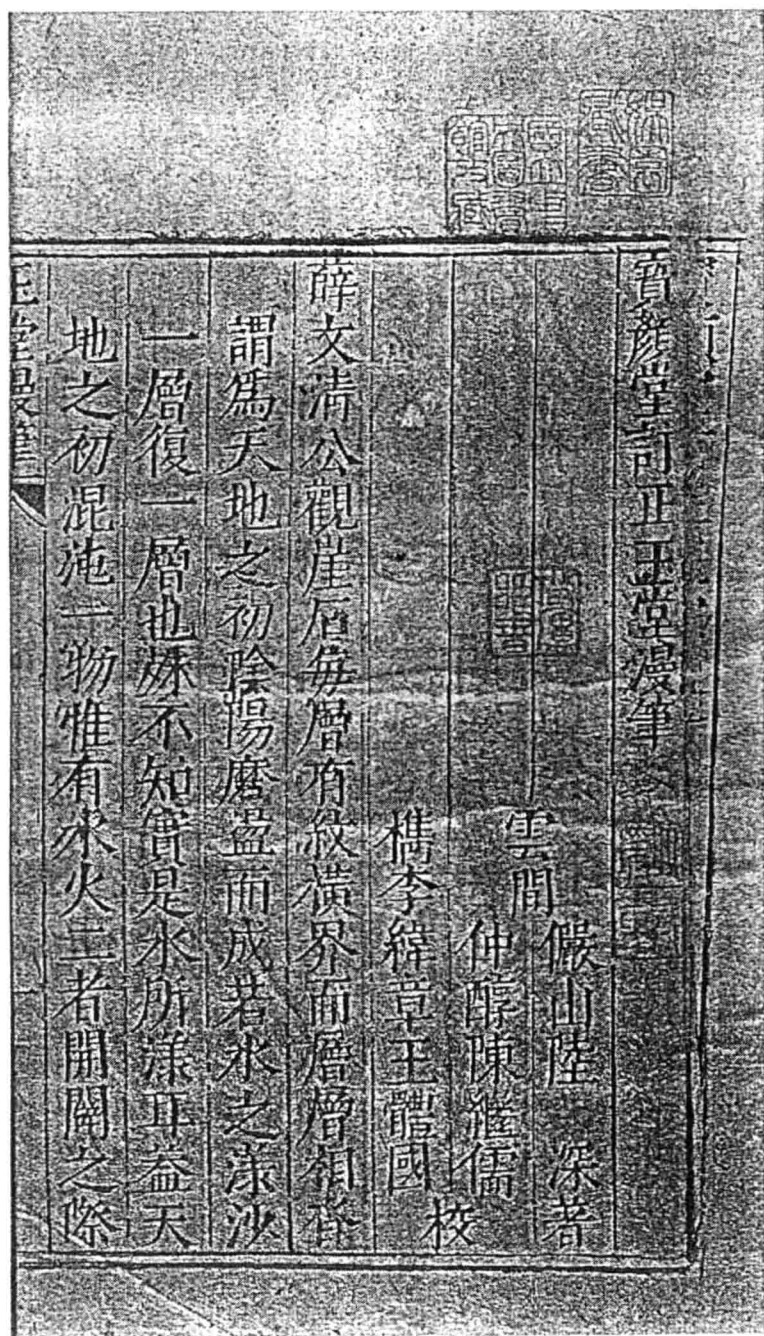 寶顏堂訂正玉堂漫筆
雲間
儼山陸 深著
仲醇陳繼儒
檇李緯章王體國
校
薛文清公觀崖石每層有紋橫界而層層相沓
謂爲天地之初陰陽磨盪而成若水之漾沙
一層復一層也殊不知實是水所漾耳蓋天
地之初混沌一物惟有水火二者開闢之際
玉堂漫筆